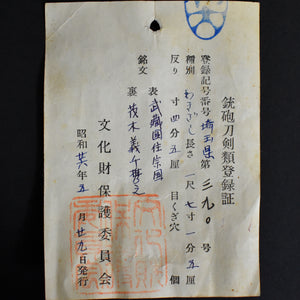 銃砲刀剣類登録証
登録記号番号 埼玉県 第三九〇号
種別 わきざし 長さ 一尺七寸一分五厘
反り 寸四分五厘 目くぎ穴 個
銘文 表 武藏国住宗国
裏 茂木義
昭和廿六年五月廿九日発行
文化財保護委員会